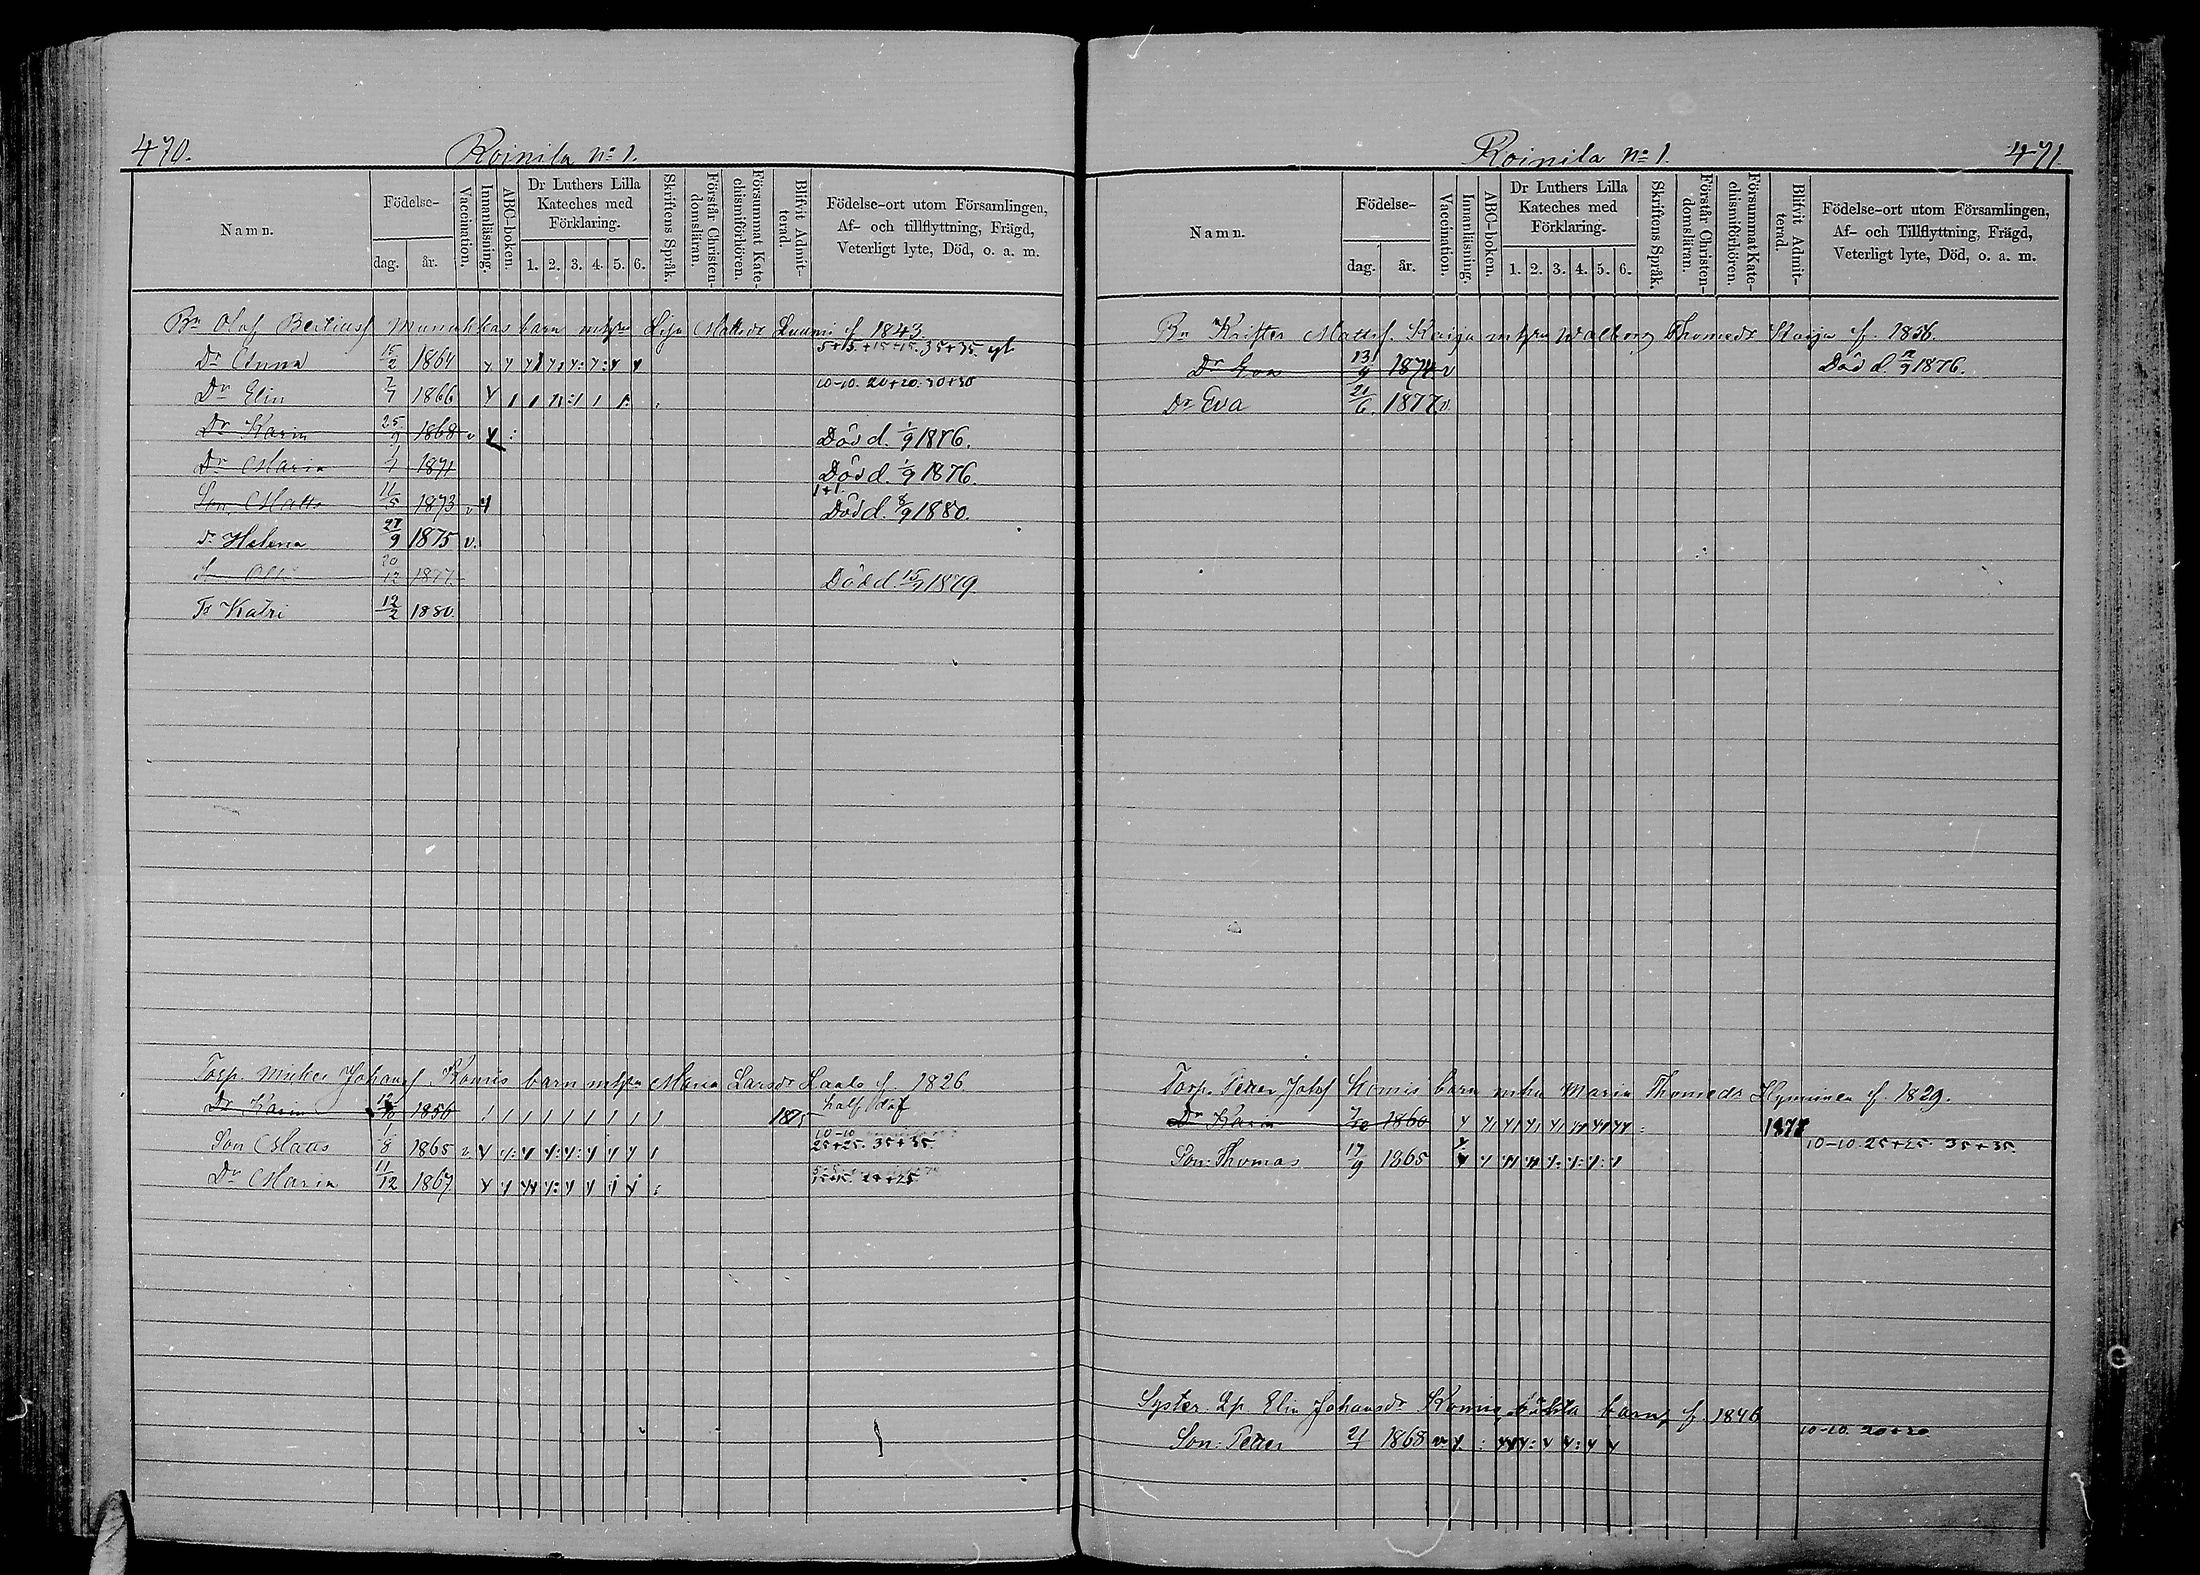 470.
Koinila No 1.
Namn.
Födelse-
dag.
år.
Vaccination.
Innanläsning.
ABC-boken.
Dr Luthers Lilla Kateches med Förklaring.
1. 2. 3. 4. 5. 6.
Skriftens Språk.
Förstår Christendomsläran.
Försummat Katechismiförhören.
Blifvit Admitterad.
Födelse-ort utom Församlingen, Af- och tillflyttning, Frägd, Veterligt lyte, Död, o. a. m.
Bn Olof Bertilss Munukkas barn m hu Lisa Mattsdr f. 1843
5+5. +15-15. 35+35.
Dr Anna 15/2 1864
10-10. 20+20. 30+30
Dr Elin 1866
Dr Karin 25/9 1868 v Död d. 1/9 1876.
Dr Maria 1/7 1871 Död d. 1/9 1876.
1+1.
Son Matts 11/5 1873 v Död d. 8/9 1880.
Dr Helena 27/9 1875 v.
20/12 1877 Död d. 15/9 1879.
Katri 12/2 1880.
Torp. Johanss Komis barn m hu Maria Larsdr f. 1826
Dr Karin 1856 1875 half döf
10-10
25+25. 35+35.
Son Matts 1/8 1865 v
Dr Maria 11/12 1867
471.
Koinila No 1.
Namn.
Födelse-
dag.
år.
Vaccination.
Innanläsning.
ABC-boken.
Dr Luthers Lilla Kateches med Förklaring.
1. 2. 3. 4. 5. 6.
Skriftens Språk.
Förstår Christendomsläran.
Försummat Katechismiförhören.
Blifvit Admitterad.
Födelse-ort utom Församlingen, Af- och Tillflyttning, Frägd, Veterligt lyte, Död, o. a. m.
Bn Krister Mattss. Kaija m hu Walborg Thomedr Kaija f. 1856.
Dr Eva 13/4 1874 v Död d. 1876.
Dr Eva 21/6 1877 v
Torp. Petter Johss Komis barn m hu Maria Thomedr Hyminen f. 1829.
Dr Karin 1860 1877
10-10. 25+25. 35+35.
Son: Thomas 17/9 1865
Syster Lp. Elin Johansdr Komis oäkta barn, f. 1846
10-10. 20+20.
Son: Petter 21/1 1868 v